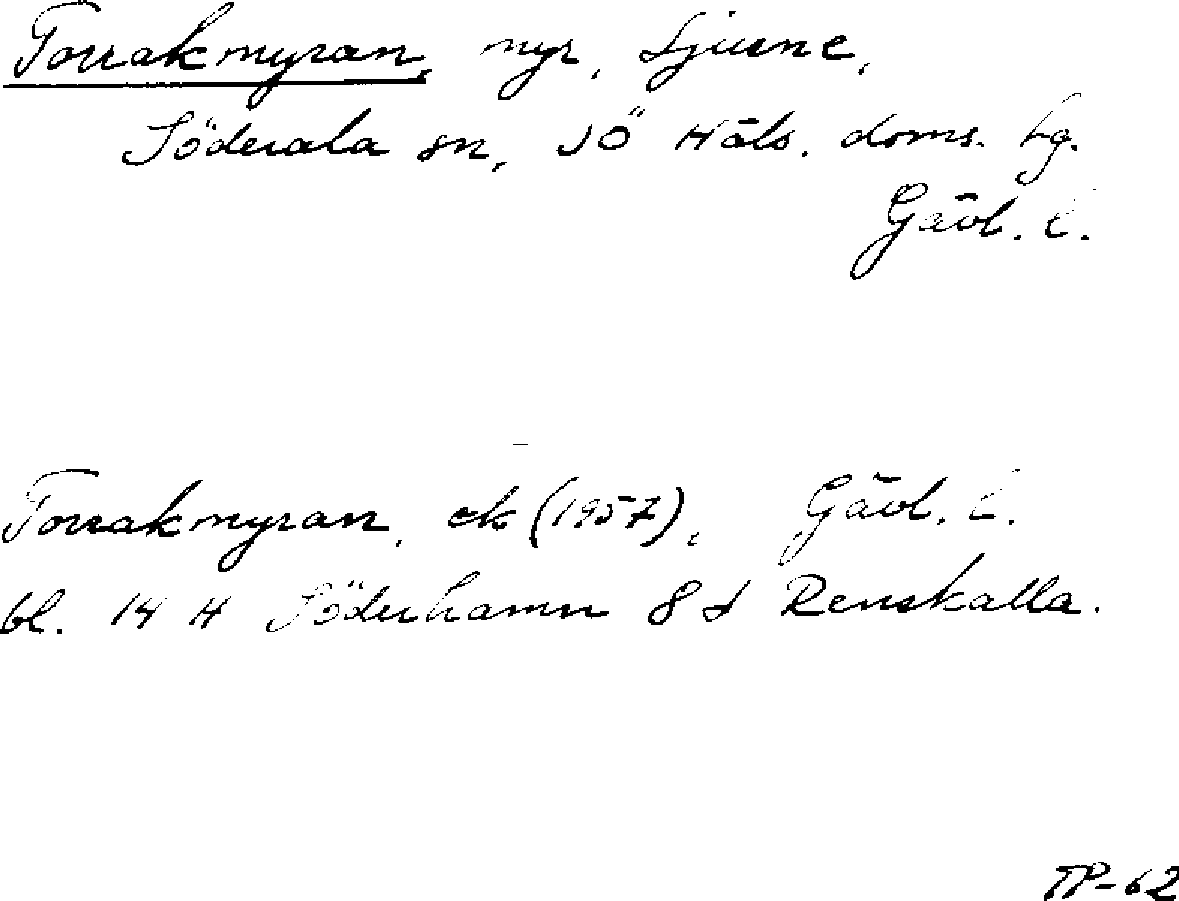 Torrakmyran, myr, Ljusne,
Söderala sn, SÖ Häls. doms. hg.
Gävl. l.
Torrakmyran, ek (1957), Gävl. l.
bl. 14 H Söderhamn 8 d Renskalla.
TP-62